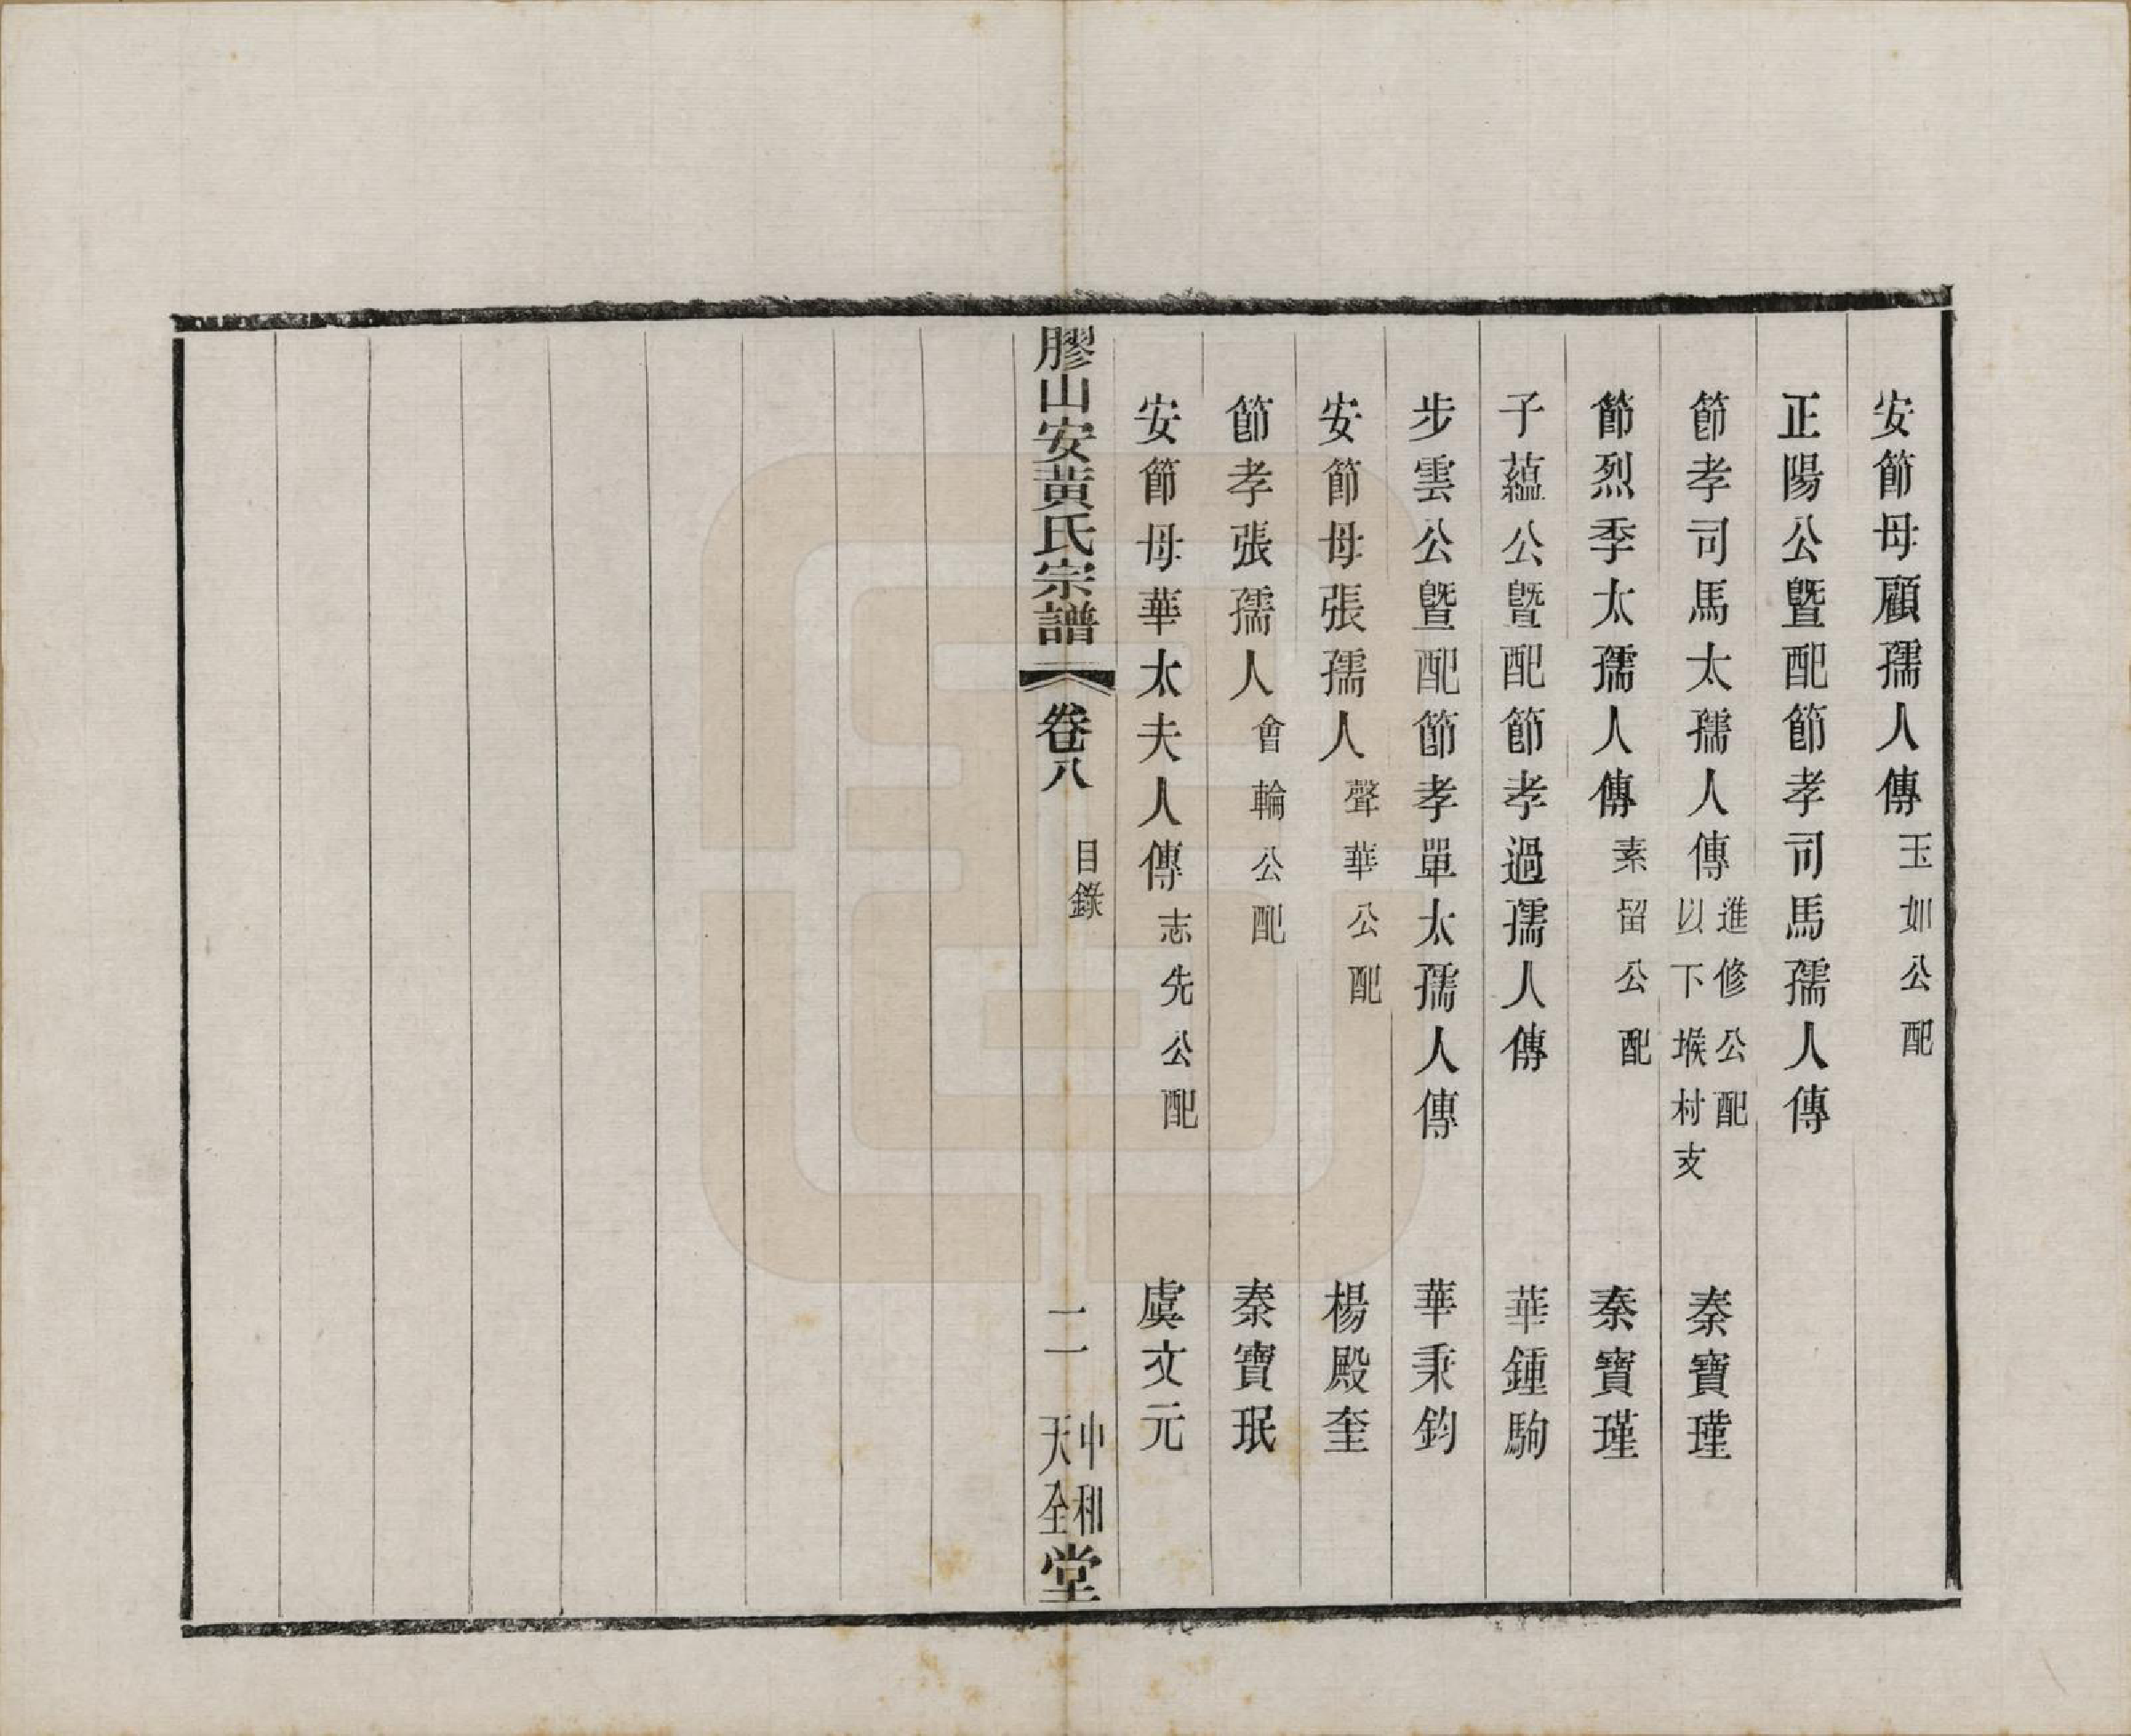 安節母顧孺人傳玉如公配
正陽公暨配節孝司馬孺人傳
節孝司馬太孺人傳進修公配以下堠村支　秦寶瑾
節烈季太孺人傳素留公配　秦寶瑾
子蘊公暨配節孝過孺人傳　華鍾駒
步雲公暨配節孝單太孺人傳　華秉鈞
安節母張孺人聲華公配　楊殿奎
節孝張孺人會輪公配　秦寶珉
安節母華太夫人傳志先公配　虞文元
膠山安黃氏宗譜　卷八　目錄　二　中和天全堂